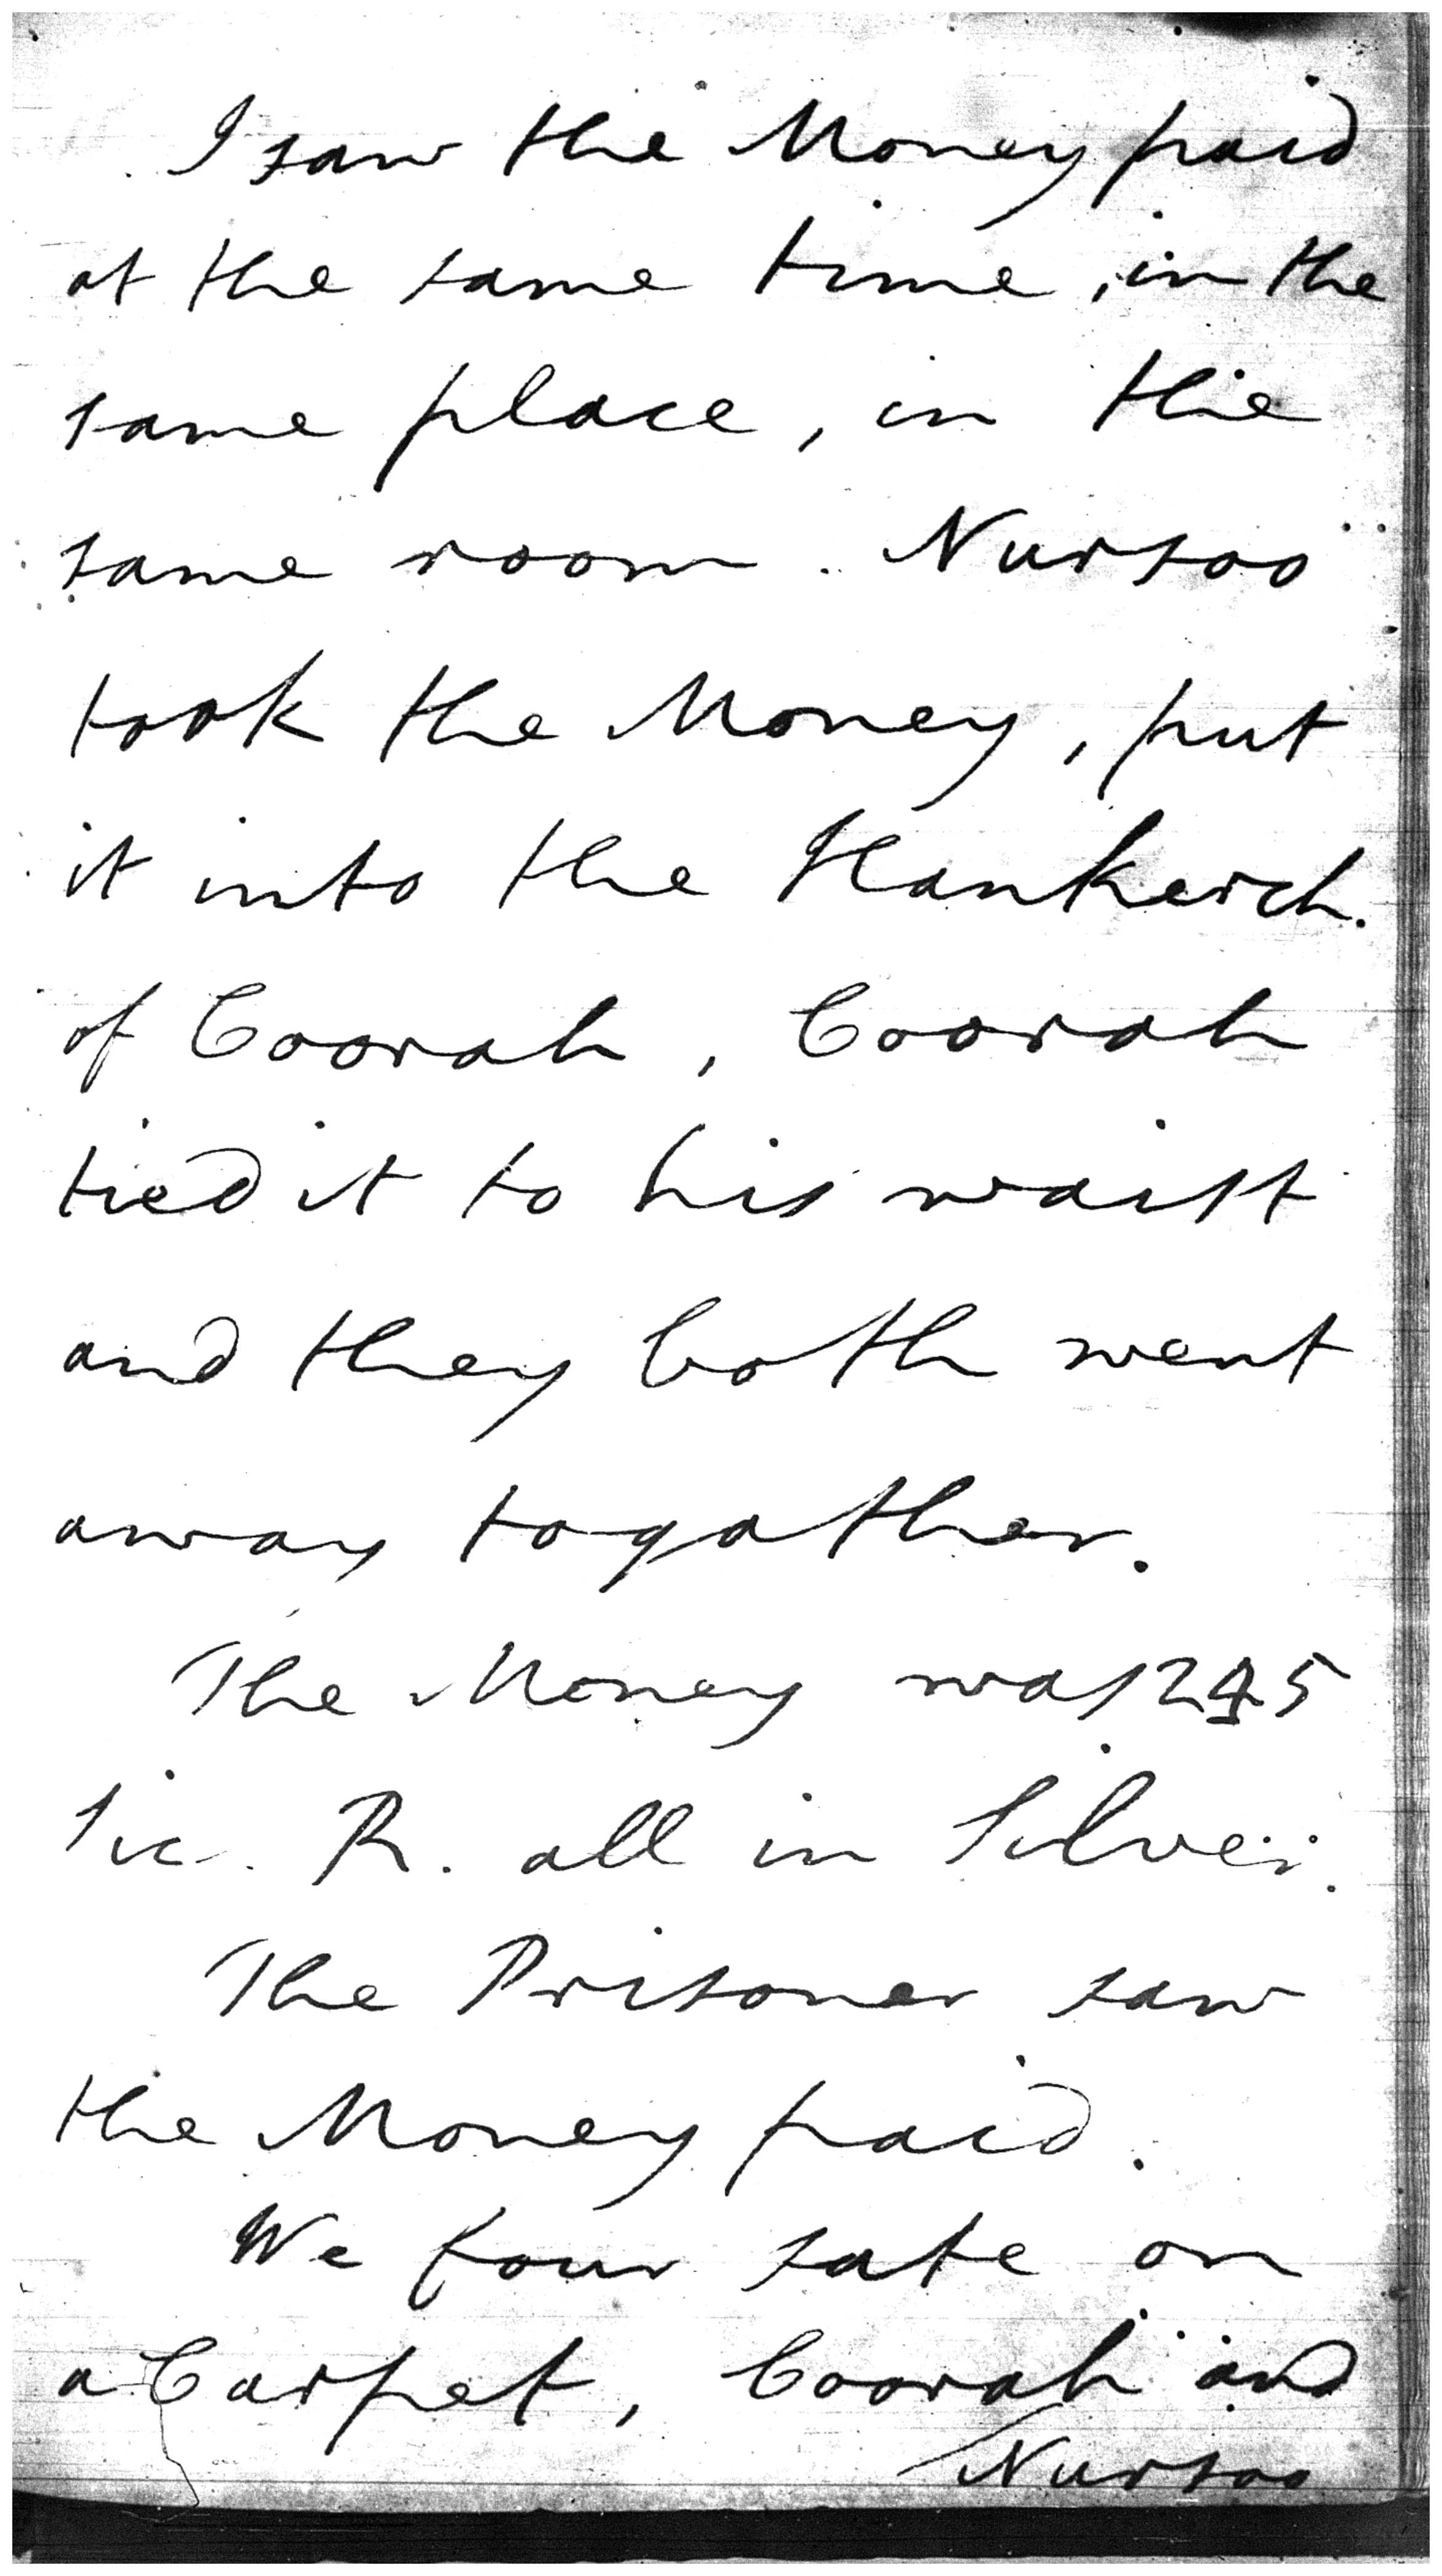 I saw the Money paid
at the same time, in the
same place, in the
same room. Nursoo
took the Money, put
it into the Hankerch.
of Coorah, Coorah
tied it to his waist
and they both went
away togather.
The Money was 245
Sic. R. all in Silver.
The Prisoner saw
the Money paid.
We four sate on
a Carpet, Coorah and
Nursoo